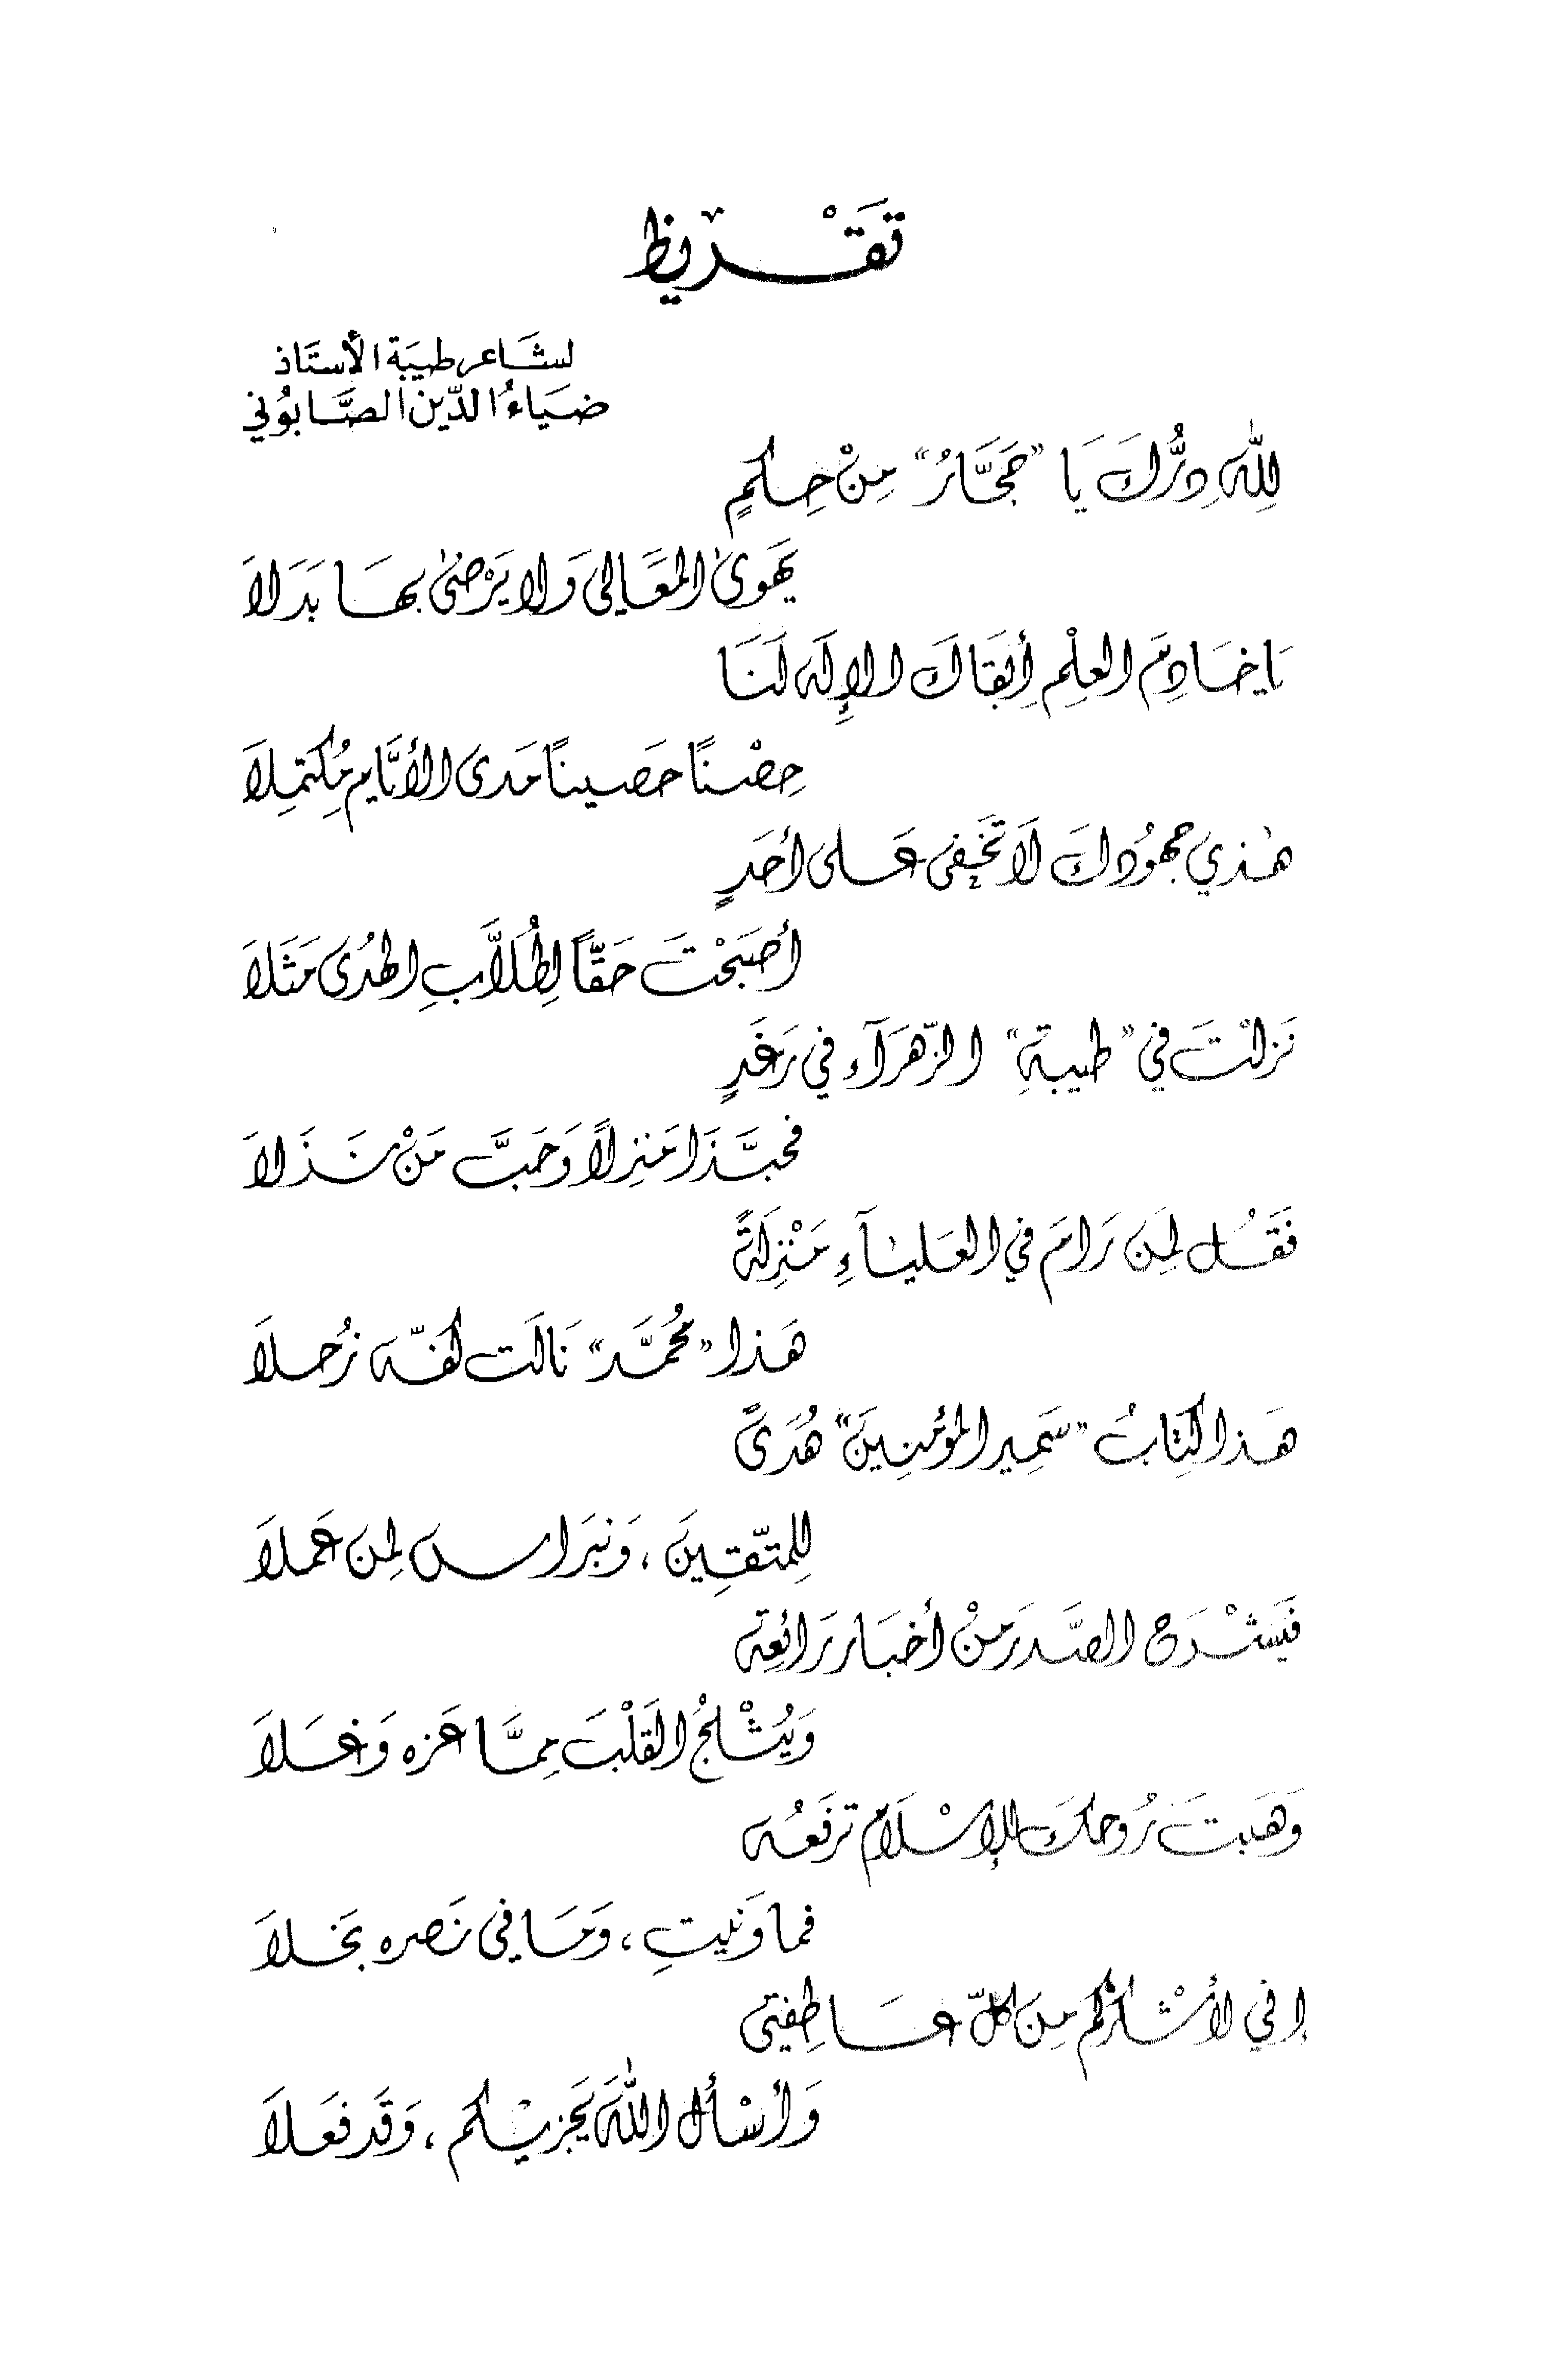 تَقْريظ
لشَاعر طيبَة الأستَاذ
ضيَاءُ الدّين الصَّابوُني
لِلّٰهِ دَرُّكَ يَا "حَجَّارُ" مِنْ حِكمٍ
يَهَوىٰ المعَالِى وَلا يَرْضىٰ بهَا بَدَلاَ
يَاخَادِمَ العِلْمِ أبقَاكَ الإِلَه لَنَا
حِصْنًا حَصيناً مَدىَ الأيَّامِ مُكتمِلاَ
هٰذي جهوُدكَ لاَ تَخفى عَلى أحَدٍ
أصبَحْتَ حَقّاً لِطُلاَّبِ الهُدىَ مَثَلاَ
نَزلْتَ في "طيبةِ" الزّهرَآءِ في رَغَدٍ
فحبَّذَا مَنزلاً وَحَبَّ مَنْ نَزَلاَ
فَقُل لمِنَ رَامَ في العَليَآءِ مَنْزِلَةً
هَذا "مُحُمَّد" نَالَت كفّه زُحلاَ
هَذا كِتَابُ "سَمِير المؤُمنِينَ" هُدىً
لِلمتّقِينَ، وَنبَراس لمِن عَملاَ
فَيشْرَح الصَّدرَ مِنْ أخبَار رَائعِة
وَيُثْلجُ القَلْبَ ممَّا عَزه وَغَلاَ
وَهَبتَ رُوحكَ للإسْلاَمِ ترفَعُه
فما وَنيتِ، وَمَا في نَصره بَخلاَ
إني لأشْكركُم مِنَ كلّ عَاطِفتي
وَأسْأل اللّٰهَ يَجزيْكم، وَقَد فعَلاَ